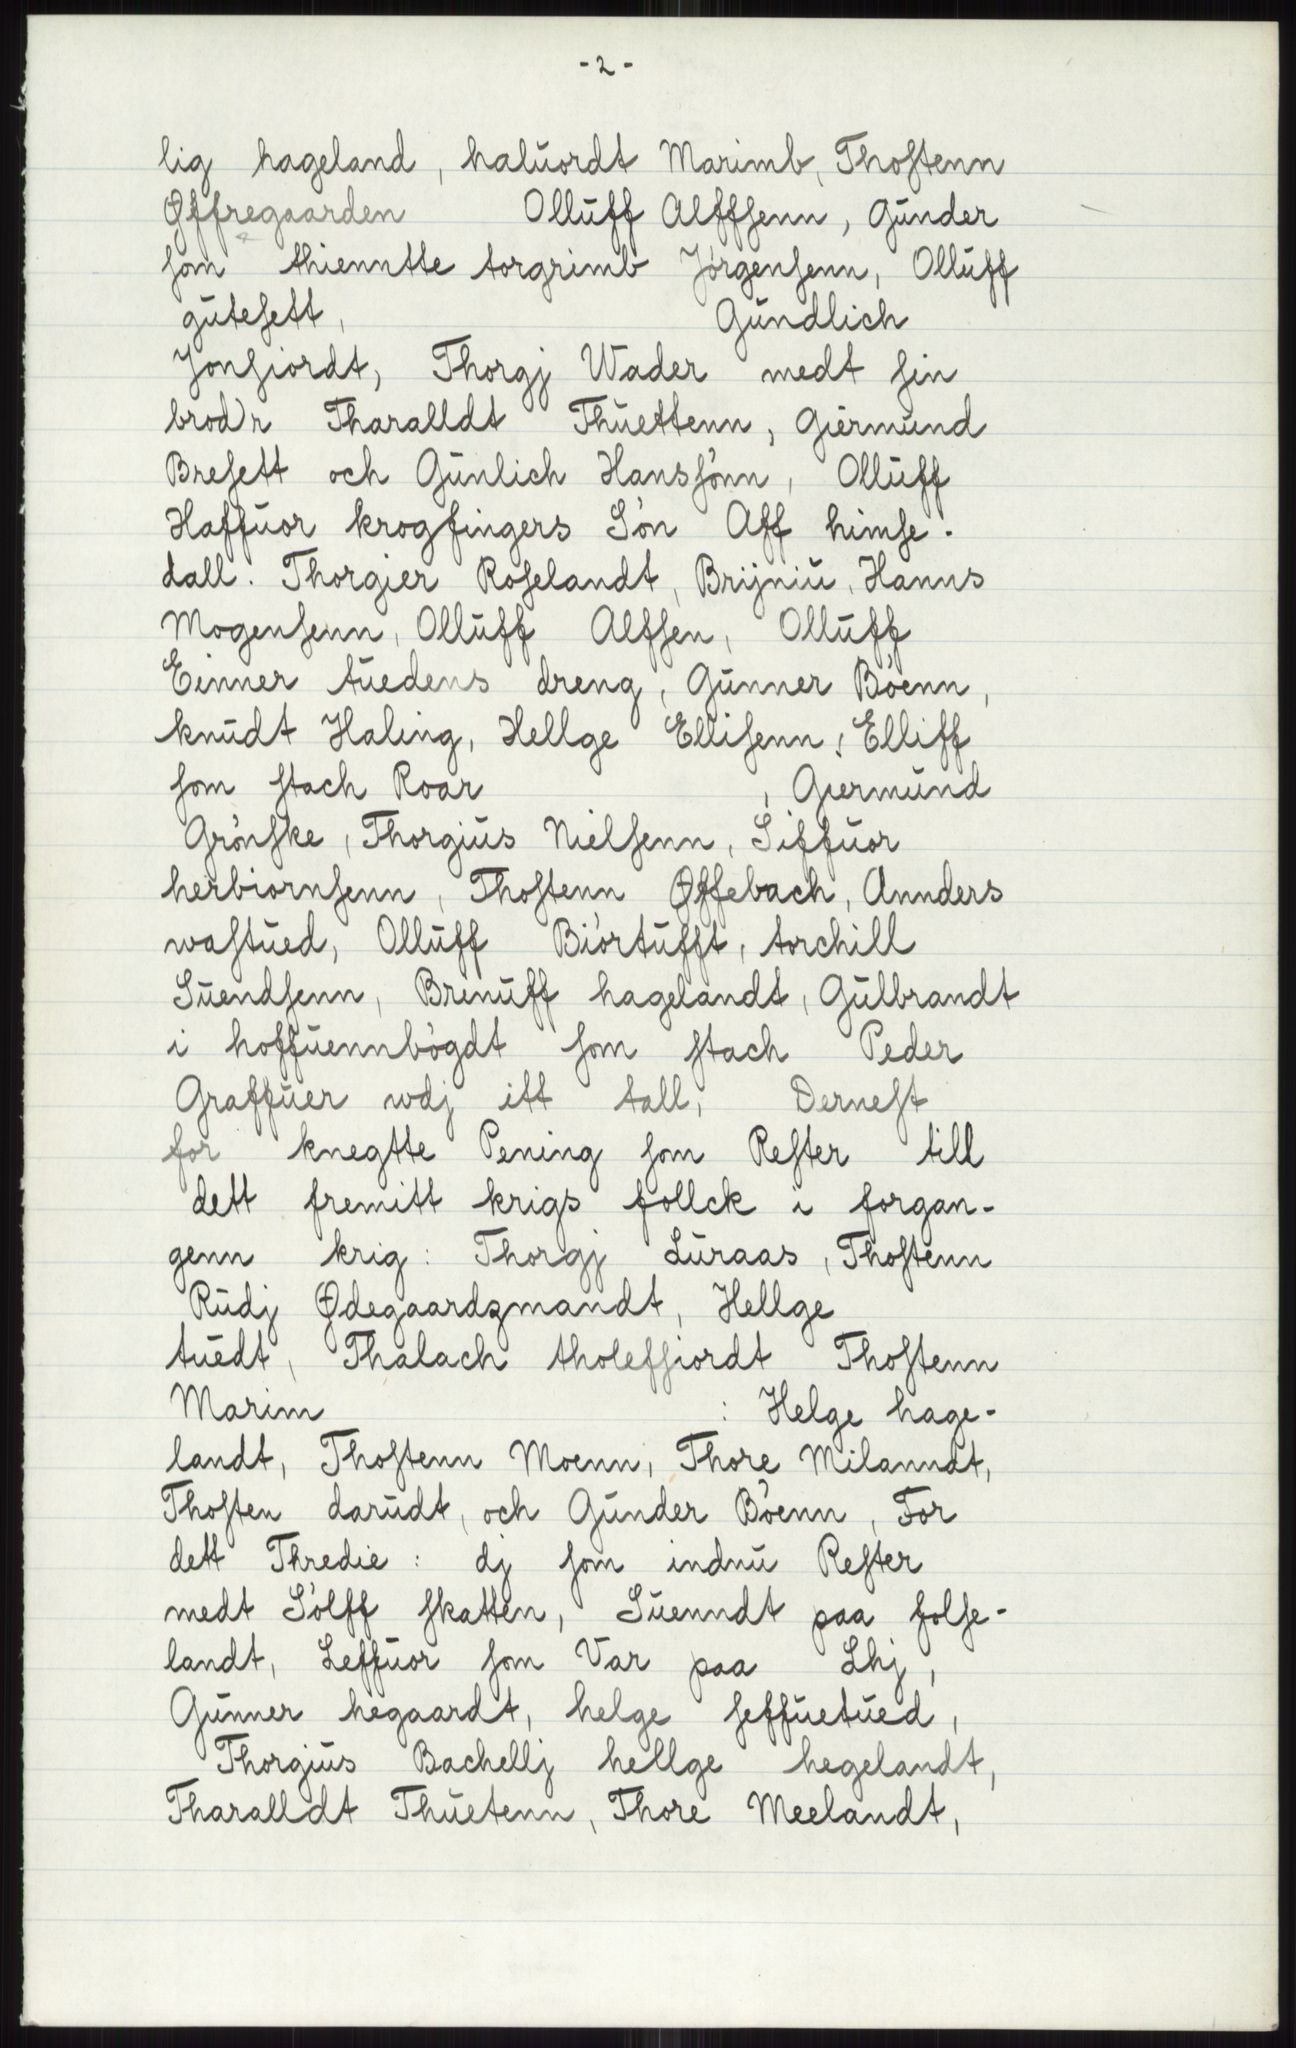 -2-
lig hageland, haluordt Marimb, Thostenn
Øffregaarden Olluff Alffsenn, Gunder
som thienntte torgrimb Jørgensenn, Olluff
gutesett, Gundlich
Jonsiordt, Thorgj Wader medt sin
brod)r Tharalldt Thuettenn, Giermund
Bresett och Gunlich Hanssønn, Olluff
Haffuor krogfingers Søn Aff himse-
dall. Thorgier Roselandt, Brijniu, Hanns
Mogensenn, Olluff Alfsen, Olluff
Einner tuedens dreng, Gunner Bøenn,
knudt Haling, Hellge Ellisenn, Elliff
som stach Roar , Giermund
Grønske, Thorgius Nielsenn, Siffuor
herbiornsenn, Thostenn Øffebach, Annders
wastued, Olluff Biørtufft, torchill
Suendsenn, Brinuff hagelandt, Gulbrandt
i hoffuennbøgdt som stach Peder
Graffuer wdj itt tall, Dernest
for knegtte Pening som Rester till
dett fremitt krigs follck i forgan-
genn krig: Thorgj Luraas, Thostenn
Rudj Ødegaardzmandt, Hellge
tuedt, Thalach tholeffiordt Thostenn
Marim : Helge hage-
landt, Thostenn Moenn, Thore Milanndt,
Thosten darudt, och Gunder Bøenn, For
dett Thredie: dj som indnu Rester
medt Sølff skatten, Suenndt paa folse-
landt, Leffuor som Var paa Lhj,
Gunner hegaardt, helge seffuetued,
Thorgius Bachellj hellge hegelandt,
Tharalldt Thuetenn, Thore Meelandt,